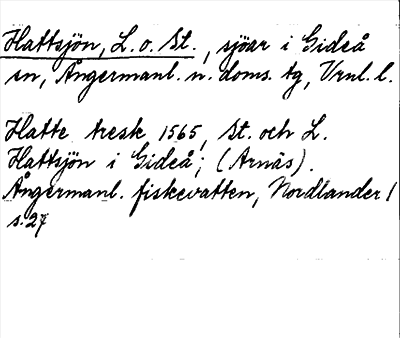 Hattsjön, L. o. St., sjöar i Gideå
sn, Ångermanl. n. doms. tg, Vrnl. l.
Hatte tresk 1565, St. och L.
Hattsjön i Gideå; (Arnäs).
Ångermanl. fiskevatten, Nordlander 1
s. 27